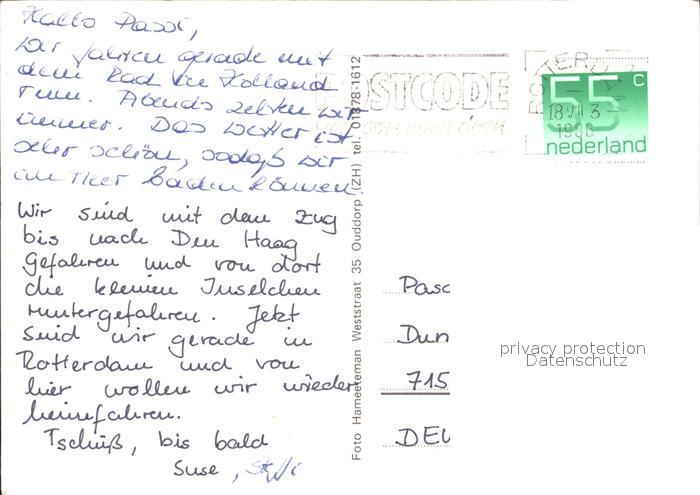 Hallo Passi,
Wir fahren gerade mit
dem Rad in Holland
rum. Abends zelten wir
immer. Das Wetter ist
sehr schön, sodaß wir
im Meer baden können.
Wir sind mit dem Zug
bis nach Den Haag
gefahren und von dort
die kleinen Inselchen
runtergefahren. Jetzt
sind wir gerade in
Rotterdam und von
hier wollen wir wieder
heimfahren.
Tschüß, bis bald
Suse, Steffi
Foto Hameeteman Weststraat 35 Ouddorp (ZH) tel. 01878-1612
POSTCODE
ROTTERDAM
18 VII 3
1988
55 c
nederland
Pasc
Dun
715
DEU
privacy protection
Datenschutz